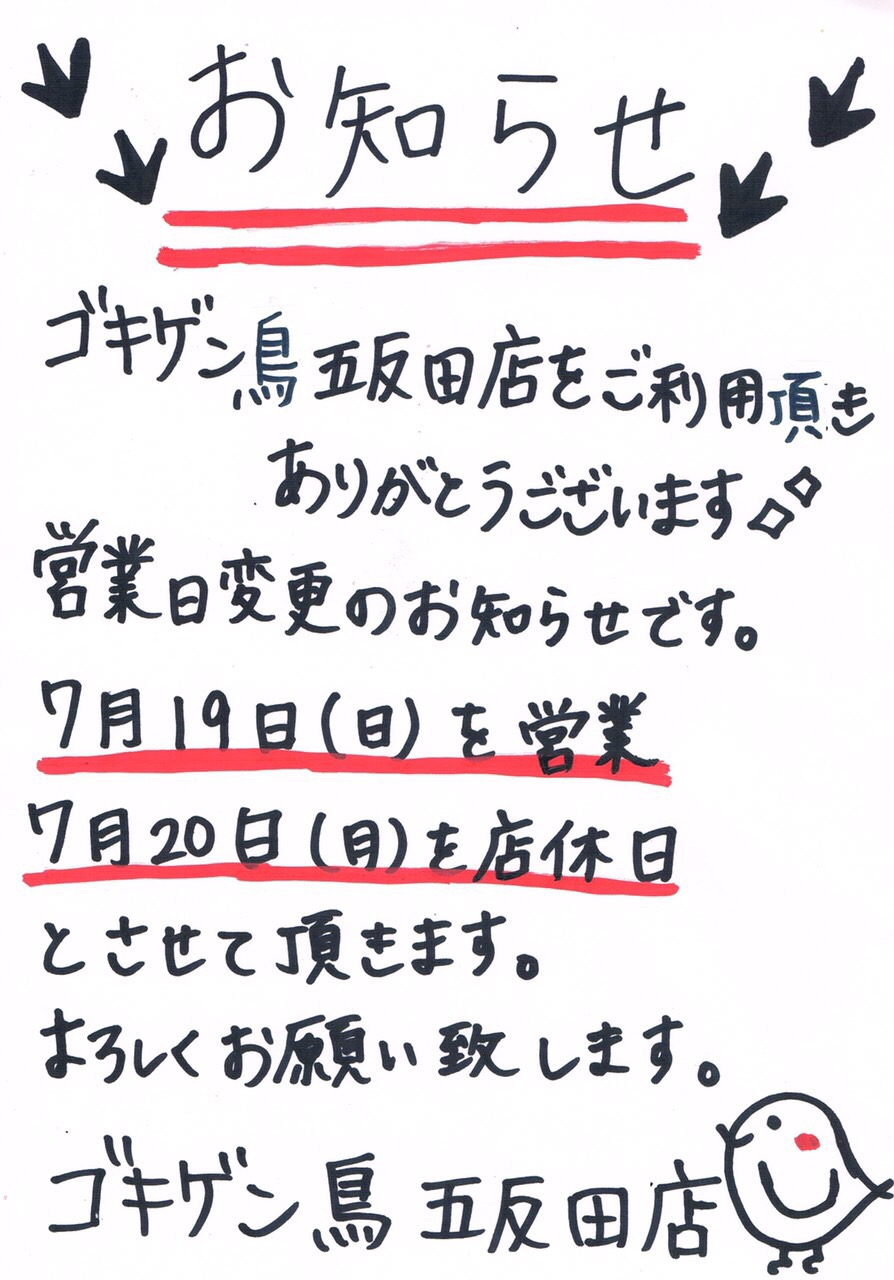 お知らせ
ゴキゲン鳥 五反田店をご利用頂き
ありがとうございます
営業日変更のお知らせです。
7月19日(日)を営業
7月20日(月)を店休日
とさせて頂きます。
よろしくお願い致します。
ゴキゲン鳥 五反田店